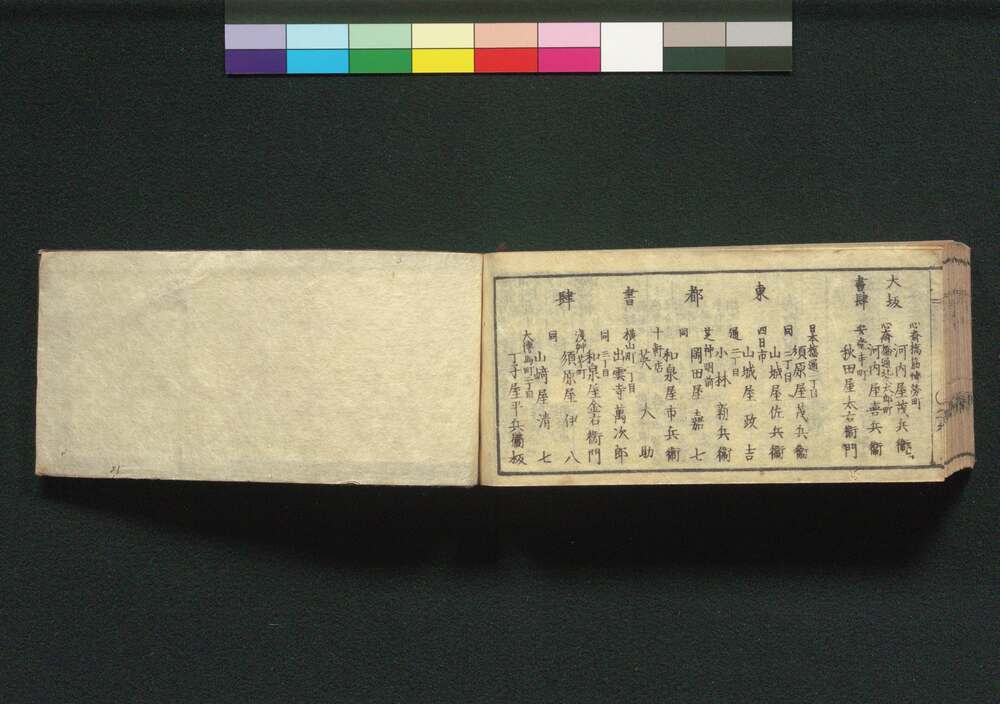 大坂書肆
心斎橋筋博労町
河内屋茂兵衛
心斎橋通北久太郎町
河内屋喜兵衛
安堂寺町
秋田屋太右衛門
東都書肆
日本橋通一丁目
須原屋茂兵衛
同二丁目
山城屋佐兵衛
四日市
山城屋政吉
通二丁目
小林新兵衛
芝神明前
岡田屋嘉七
同
和泉屋市兵衛
十軒店
英大助
横山町一丁目
出雲寺萬次郎
同三丁目
和泉屋金右衛門
浅艸茅町
須原屋伊八
同
山﨑屋清七
大傳馬町二丁目
丁子屋平兵衛板